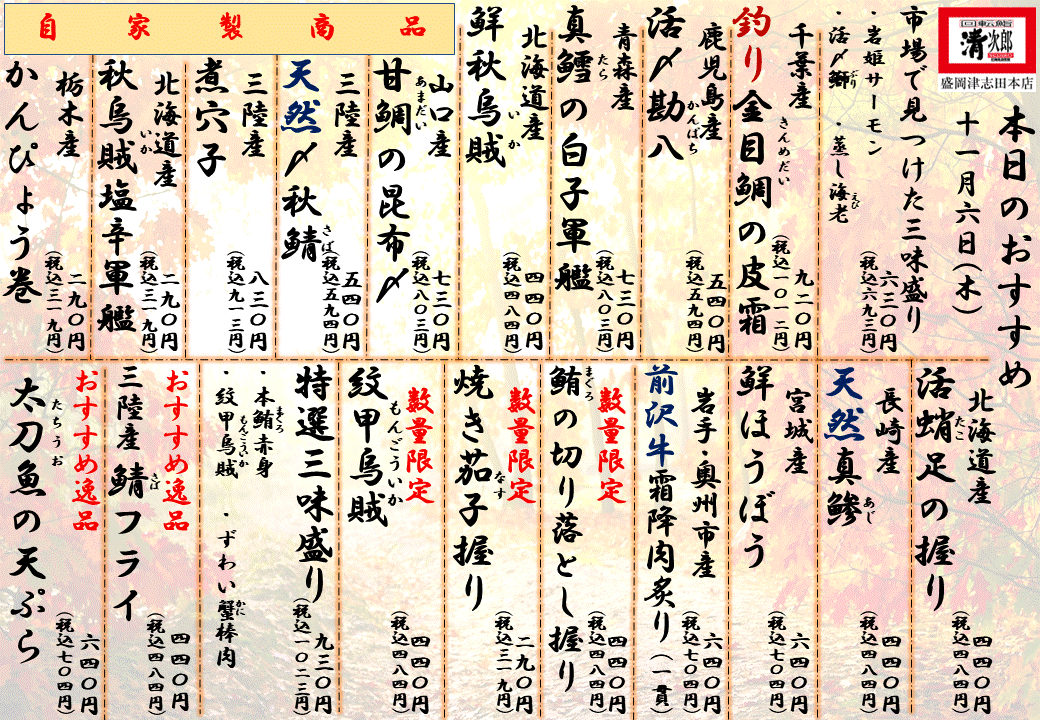 回転鮨
清次郎
盛岡津志田本店
本日のおすすめ
十一月六日(木)
市場で見つけた三味盛り
・岩姫サーモン
・活〆鰤 ・蒸し海老
ぶり
えび
六三〇円
(税込六九三円)
千葉産
釣り金目鯛の皮霜
きんめだい
九二〇円
(税込一〇一二円)
鹿児島産
活〆勘八
かんぱち
五四〇円
(税込五九四円)
青森産
真鱈の白子軍艦
たら
七三〇円
(税込八〇三円)
北海道産
鮮秋烏賊
いか
四四〇円
(税込四八四円)
自家製商品
山口産
甘鯛の昆布〆
あまだい
七三〇円
(税込八〇三円)
三陸産
天然〆秋鯖
さば
五四〇円
(税込五九四円)
三陸産
煮穴子
八三〇円
(税込九一三円)
北海道産
秋烏賊塩辛軍艦
いか
二九〇円
(税込三一九円)
栃木産
かんぴょう巻
二九〇円
(税込三一九円)
北海道産
活蛸足の握り
たこ
四四〇円
(税込四八四円)
長崎産
天然真鯵
あじ
四四〇円
(税込四八四円)
宮城産
鮮ほうぼう
六四〇円
(税込七〇四円)
岩手・奥州市産
前沢牛霜降肉炙り(一貫)
六四〇円
(税込七〇四円)
数量限定
鮪の切り落とし握り
まぐろ
四四〇円
(税込四八四円)
数量限定
焼き茄子握り
なす
二九〇円
(税込三一九円)
数量限定
紋甲烏賊
もんごういか
四四〇円
(税込四八四円)
特選三味盛り
・本鮪赤身
まぐろ
・紋甲烏賊 ・ずわい蟹棒肉
もんごういか
かに
九三〇円
(税込一〇二三円)
おすすめ逸品
三陸産 鯖フライ
さば
四四〇円
(税込四八四円)
おすすめ逸品
太刀魚の天ぷら
たちうお
六四〇円
(税込七〇四円)